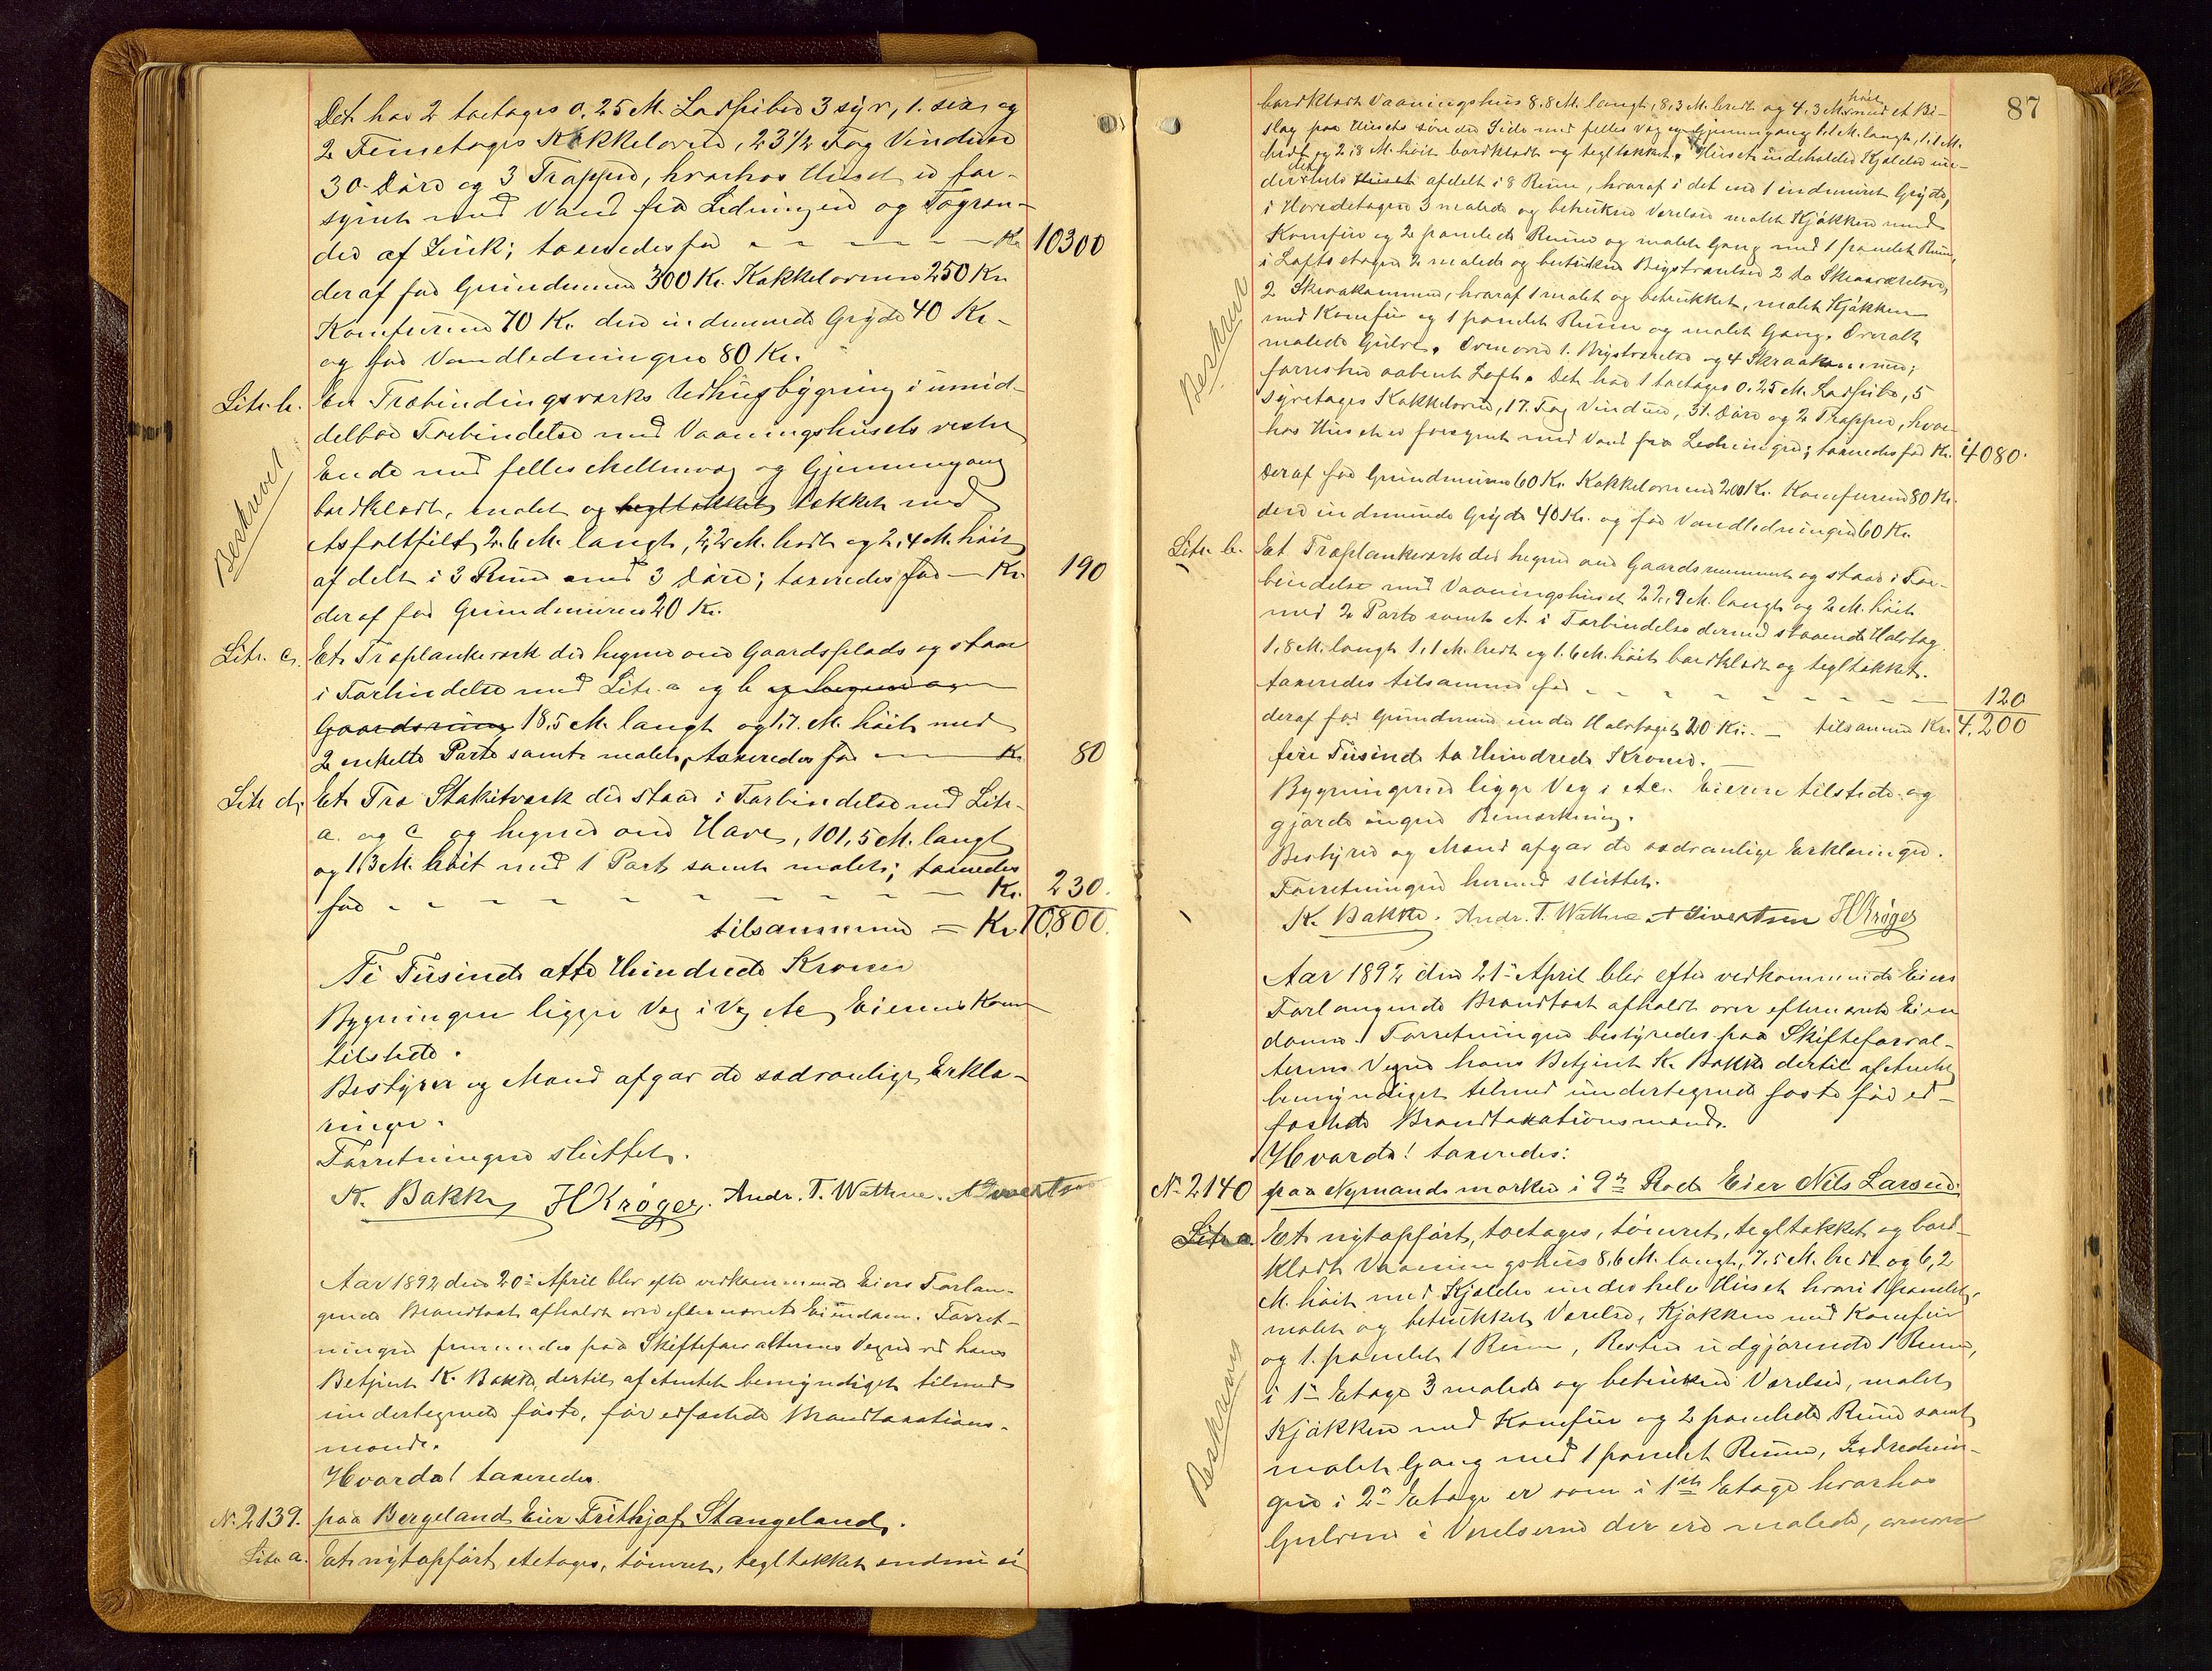 Det har 2 toetages 0.25 M. Ladpiber 3 syv, 1. sex og
2 Femetages Kakkelovne, 23 1/2 Fag Vinduer
30 Döre og 3 Trapper, hvorhos Huset er for-
synet med Vand fra Ledningen og Tagren-
der af Zink; taxeredes for - - - - Kr. 10300
deraf for Grundmuren 300 Kr. Kakkelovnene 250 Kr.
Komfurene 70 Kr. den indmurede Gryde 40 Kr.
og for Vandledningen 80 Kr.
Litr. b. En Træbindingsværks Udhusbygning i umid-
delbar Forbindelse med Vaaningshusets vestre
Ende med felles Mellemvæg og Gjennemgang
Beskrevet
bordklædt, malet og tegltækket tækket med
Asfaltfilt 2.6 M. langt, 2,2 M. bredt og 2,4 M. höit
afdelt i 3 Rum med 3 Döre; taxeredes for - Kr. 190
deraf for Grundmuren 20 Kr.
Litr. c. Et Træplankeværk der hegner om Gaardsplads og staar
i Forbindelse med Litr. a og b og hegner om
Gaardsrum 18,5 M. langt og 1.7. M. höit med
2 enkelte Porte samt malet, taxeredes for - Kr. 80
Litr d. Et Træ Stakitværk der staar i Forbindelse med Litr.
a. og c og hegner om Have, 101,5 M. langt
og 1.3 M. höit med 1 Port samt malet; taxeredes
for - - - - - - - Kr. 230.
tilsammen = Kr. 10,800.
Ti Tusinde otte Hundrede Kroner
Bygningen ligger Væg i Væg etc Eierens Kone
tilstede.
Bestyrer og Mænd afgav de sædvanlige Erklæ-
ringer.
Forretningen sluttet.
K. Bakke HKröger. Andr. T. Wathne. A Sivertsen
Aar 1892 den 20de April blev efter vedkommende Eiers Forlan-
gende Brandtaxt afholdt over efternævnte Eiendom. Forret-
ningen fremmedes paa Skifteforvalterens Vegne ved hans
Betjent K. Bakke, dertil af Amtet bemyndiget tilmed
undertegnede faste, för edfæstede Brandtaxations-
mænd.
Hvorda! taxeredes.
No. 2139. paa Bergeland Eier Frithjof Stangeland.
Litr a. Et nytopfört, etetages, tömret, tegltækket
87
bordklædt Vaaningshus 8.8 M. langt, 8,3 M. bredt og 4,3 M. höit med et Bi-
slag paa Husets söndre Side med felles Væg og Gjennemgang 1.1 M. langt, 1.1 M.
bredt og 2.8 M. höit bordklædt og tegltækket. Huset indeholder Kjælder un-
der det hele Huset afdelt i 8 Rum, hvoraf i det ene 1 indmuret Gryde,
i Hovedetagen 3 malede og betrukne Værelser malet Kjökken med
Komfur og 2 panelede Rum og malet Gang med 1 panelet Rum,
i Loftsetagen 2 malede og betrukne Bigstværelser 2 do Skraaværelser,
2 Skraakammere, hvoraf 1 malet og betrukket, malet Kjökken
Beskrevet
med Komfur og 1 panelet Rum og malet Gang. Overalt
malede Gulve. Ovenover 1. Bigstværelse og 4 Skraakammere;
forresten aabent Loft. Det har 1 toetages 0.25 M. Ladpibe, 5
syvetages Kakkelovne, 17. Fag Vinduer, 31. Döre og 2 Trapper, hvor-
hos Huset er forsynet med Vand fra Ledningen; taxeredes for Kr. 4080.
Deraf for Grundmuren 60 Kr. Kakkelovnene 200 Kr. Komfurene 80 Kr.
den indmurede Gryde 40 Kr. og for Vandledningen 60 Kr.
Litr. b. Et Træplankeværk der hegner om Gaardsrummet og staar i For-
bindelse med Vaaningshuset 22,9 M. langt og 2 M. höit
med 2 Porte samt et i Forbindelse dermed staaende Halvtag
1.8 M. langt 1,1 M. bredt og 1.6 M. höit bordklædt og tegltækket.
taxeredes tilsammen for - - - - - - 120
deraf for Grundmur under Halvtaget 20 Kr. - tilsammen Kr. 4,200
fire Tusinde to Hundrede Kroner.
Bygningerne ligge Væg i etc. Eieren tilstede og
gjorde ingen Bemærkning.
Bestyrer og Mænd afgav de sædvanlige Erklæringer.
Forretningen hermed sluttet.
K. Bakke. Andr. T. Wathne A Sivertsen HKröger
Aar 1892 den 21de April blev efter vedkommende Eiers
Forlangende Brandtaxt afholdt over efternævnte Eien
domme. Forretningen bestyredes paa Skifteforval-
terens Vegne hans Betjent K. Bakke dertil af Amtet
bemyndiget tilmed undertegnede faste för ed-
fæstede Brandtaxationsmænd.
Hvorda! taxeredes:
No. 2140 paa Nymandsmarken i 9de Rode Eier Nils Larsen.
Litr a. Et nytopfört, toetages, tömret, tegltækket og bord-
klædt Vaaningshus 8,6 M. langt, 7,5 M. bredt og 6,2
M. höit med Kjælder under hele Huset hvori 1 panelet,
malet og betrukket Værelse, Kjökken med Komfur
og 1. panelet 1 Rum, Resten udgjörende 1 Rum,
Beskreven
i 1ste Etage 3 malede og betrukne Værelser, malet
Kjökken med Komfur og 2 panelede Rum samt
malet Gang med 1 panelet Rum, Indrednin-
gen i 2den Etage er som i 1ste Etage hvorhos
Gulvene i Værelserne der ere malede,